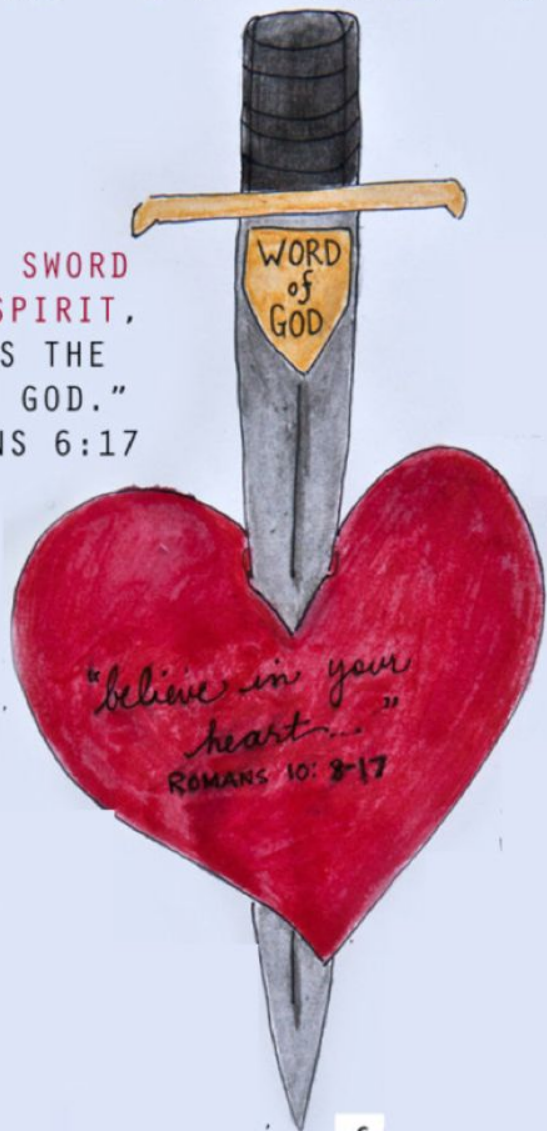 SWORD
SPIRIT,
S THE
GOD."
NS 6:17
WORD
of
GOD
"believe in your
heart..."
ROMANS 10:8-17